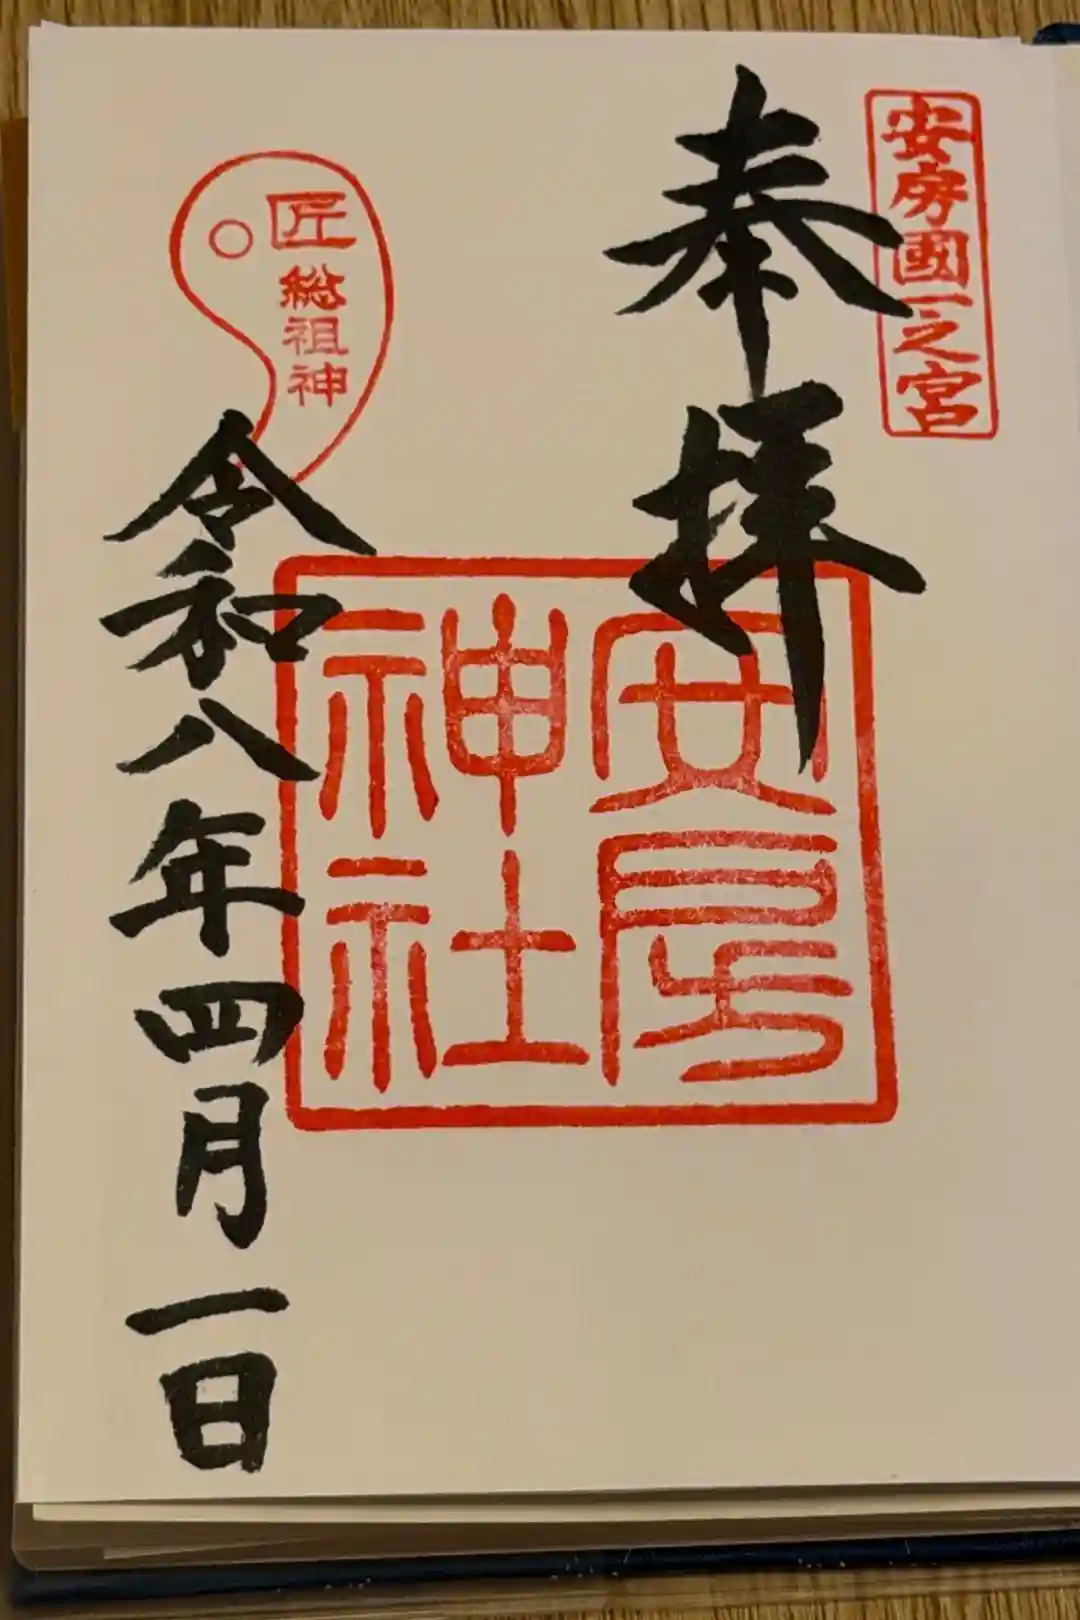 安房國一之宮
奉拝
安房
神社
匠
総祖神
令和八年四月一日